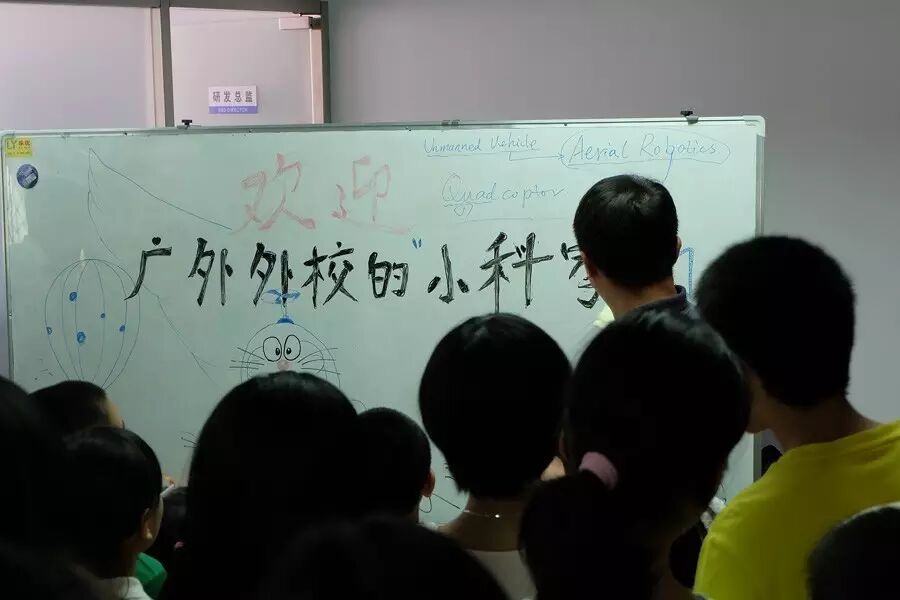 研发总监
R&D DIRECTOR
LY
Unmanned Vehicle
Aerial Robotics
欢迎
Quadcoptor
户外外校的"小科学